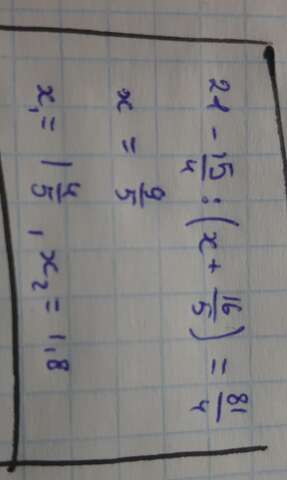 21 - 15/4 : (x + 16/5) = 81/4
x = 9/5
x₁ = 1 4/5, x₂ = 1,8